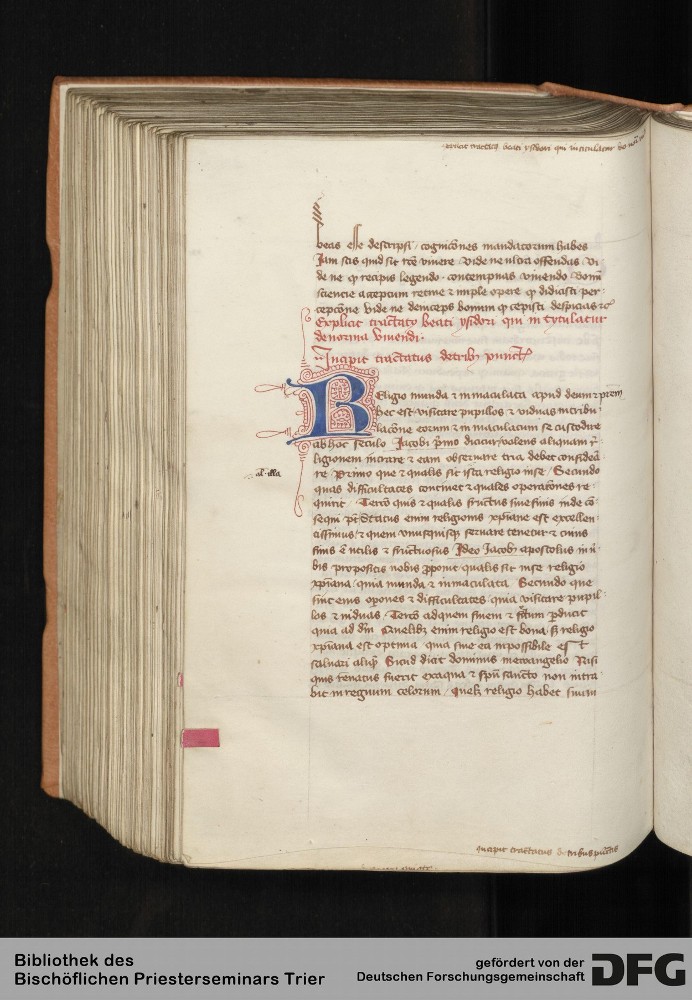 explicit tractatus beati ysidori qui intitulatur de norma
beas esse descripsi / cognicōnes mandatorum habes
Jam scis quid sit rc̄e vivere vide ne ultra offendas vi-
de ne qd recipis legendo contempnas vivendo donū
sciencie acceptum retine & imple opere qd didicisti per-
cepcōne vide ne deinceps bonum qd cepisti despicias &c
Explicit tractatus beati ysidori qui intytulatur
de norma vivendi
Incipit tractatus de trib punct
Religio munda & inmaculata apud deum & prem
hec est visitare pupillos & viduas in tribu
lacōne eorum & inmaculatum se custodire
ab hoc seculo Jacobi pͥmo dicitur volens aliquam r̄-
ligionem intrare & eam observare tria debet considera
re Primo que & qualis sit ista religio in se Secundo
al' illa
quas difficultates continet & quales operatōnes re-
quirit Tercō quis & qualis fructus sive finis inde cō-
seqni Status enim religionis xp̄iane est excellen-
tissimus & quem unusquisqȝ servare tenetur & cuius
finis ē utilis & fructuosus Ideo Jacobus apostolus in v̄-
bis propositis nobis ꝓponit qualis sit in se religio
xp̄iana quia munda & inmaculata Secundo que
sint eius oꝑōnes & difficultates quia visitare pupil-
los & viduas Tercō ad quem finem & fructum ꝓducit
quia ad dm̄ Quelibȝ enim religio est bona sȝ religio
xp̄iana est optima quia sine ea inpossibile est
salvari aliqȝ Sicud dicit dominus in ewangelio Nisi
quis renatus fuerit ex aqua & spū sancto non intra
bit in regnum celorum Quelȝ religio habet suum
incipit tractatus de tribus punctis
Bibliothek des
Bischöflichen Priesterseminars Trier
gefördert von der
Deutschen Forschungsgemeinschaft
DFG